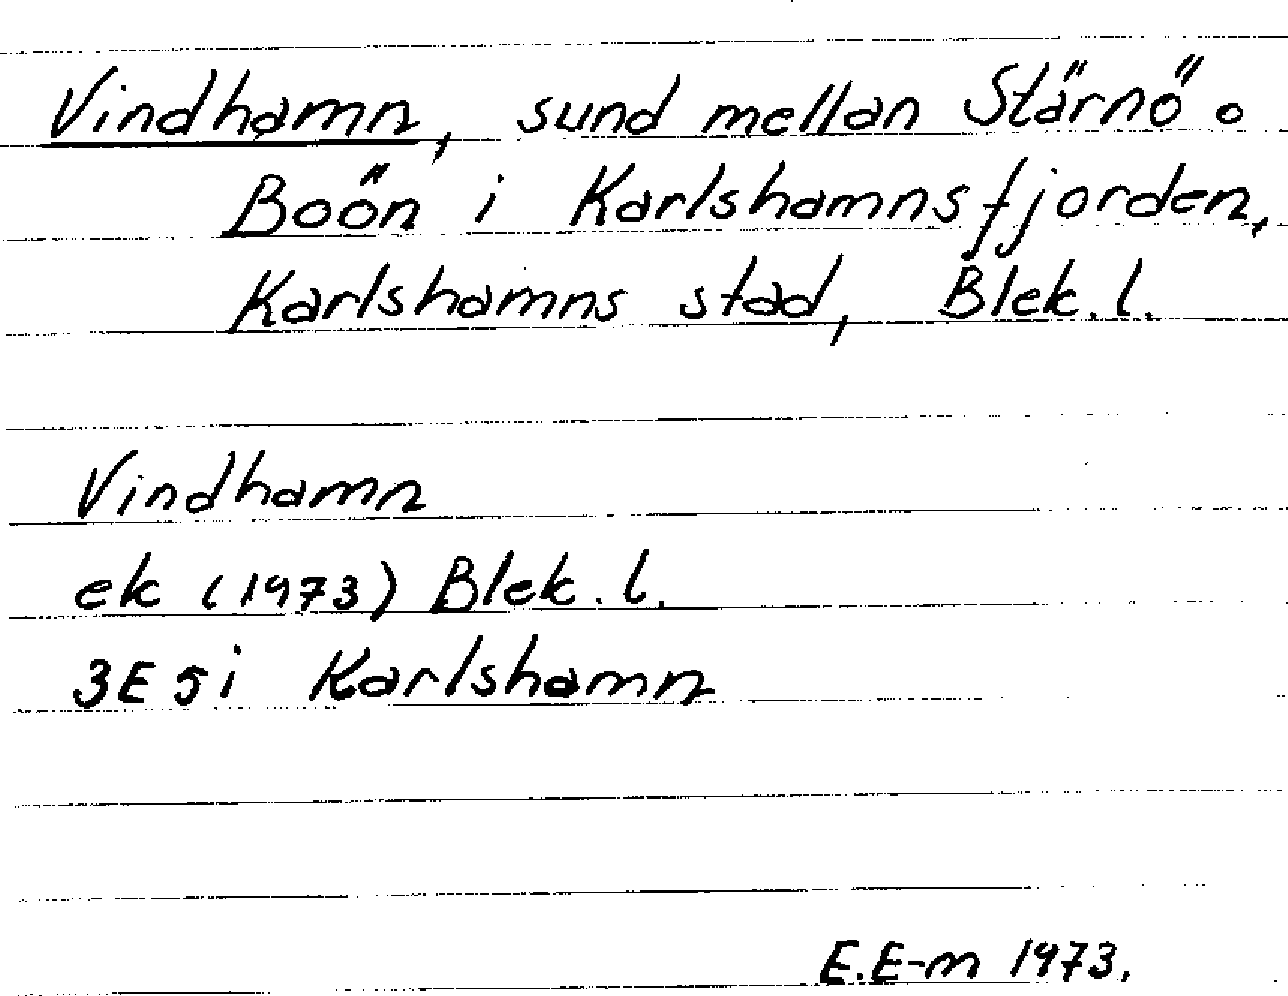 Vindhamn, sund mellan Stärnö o
Boön i Karlshamnsfjorden,
Karlshamns stad, Blek. l.
Vindhamn
ek (1973) Blek. l.
3E 5i Karlshamn
E.E-m 1973.